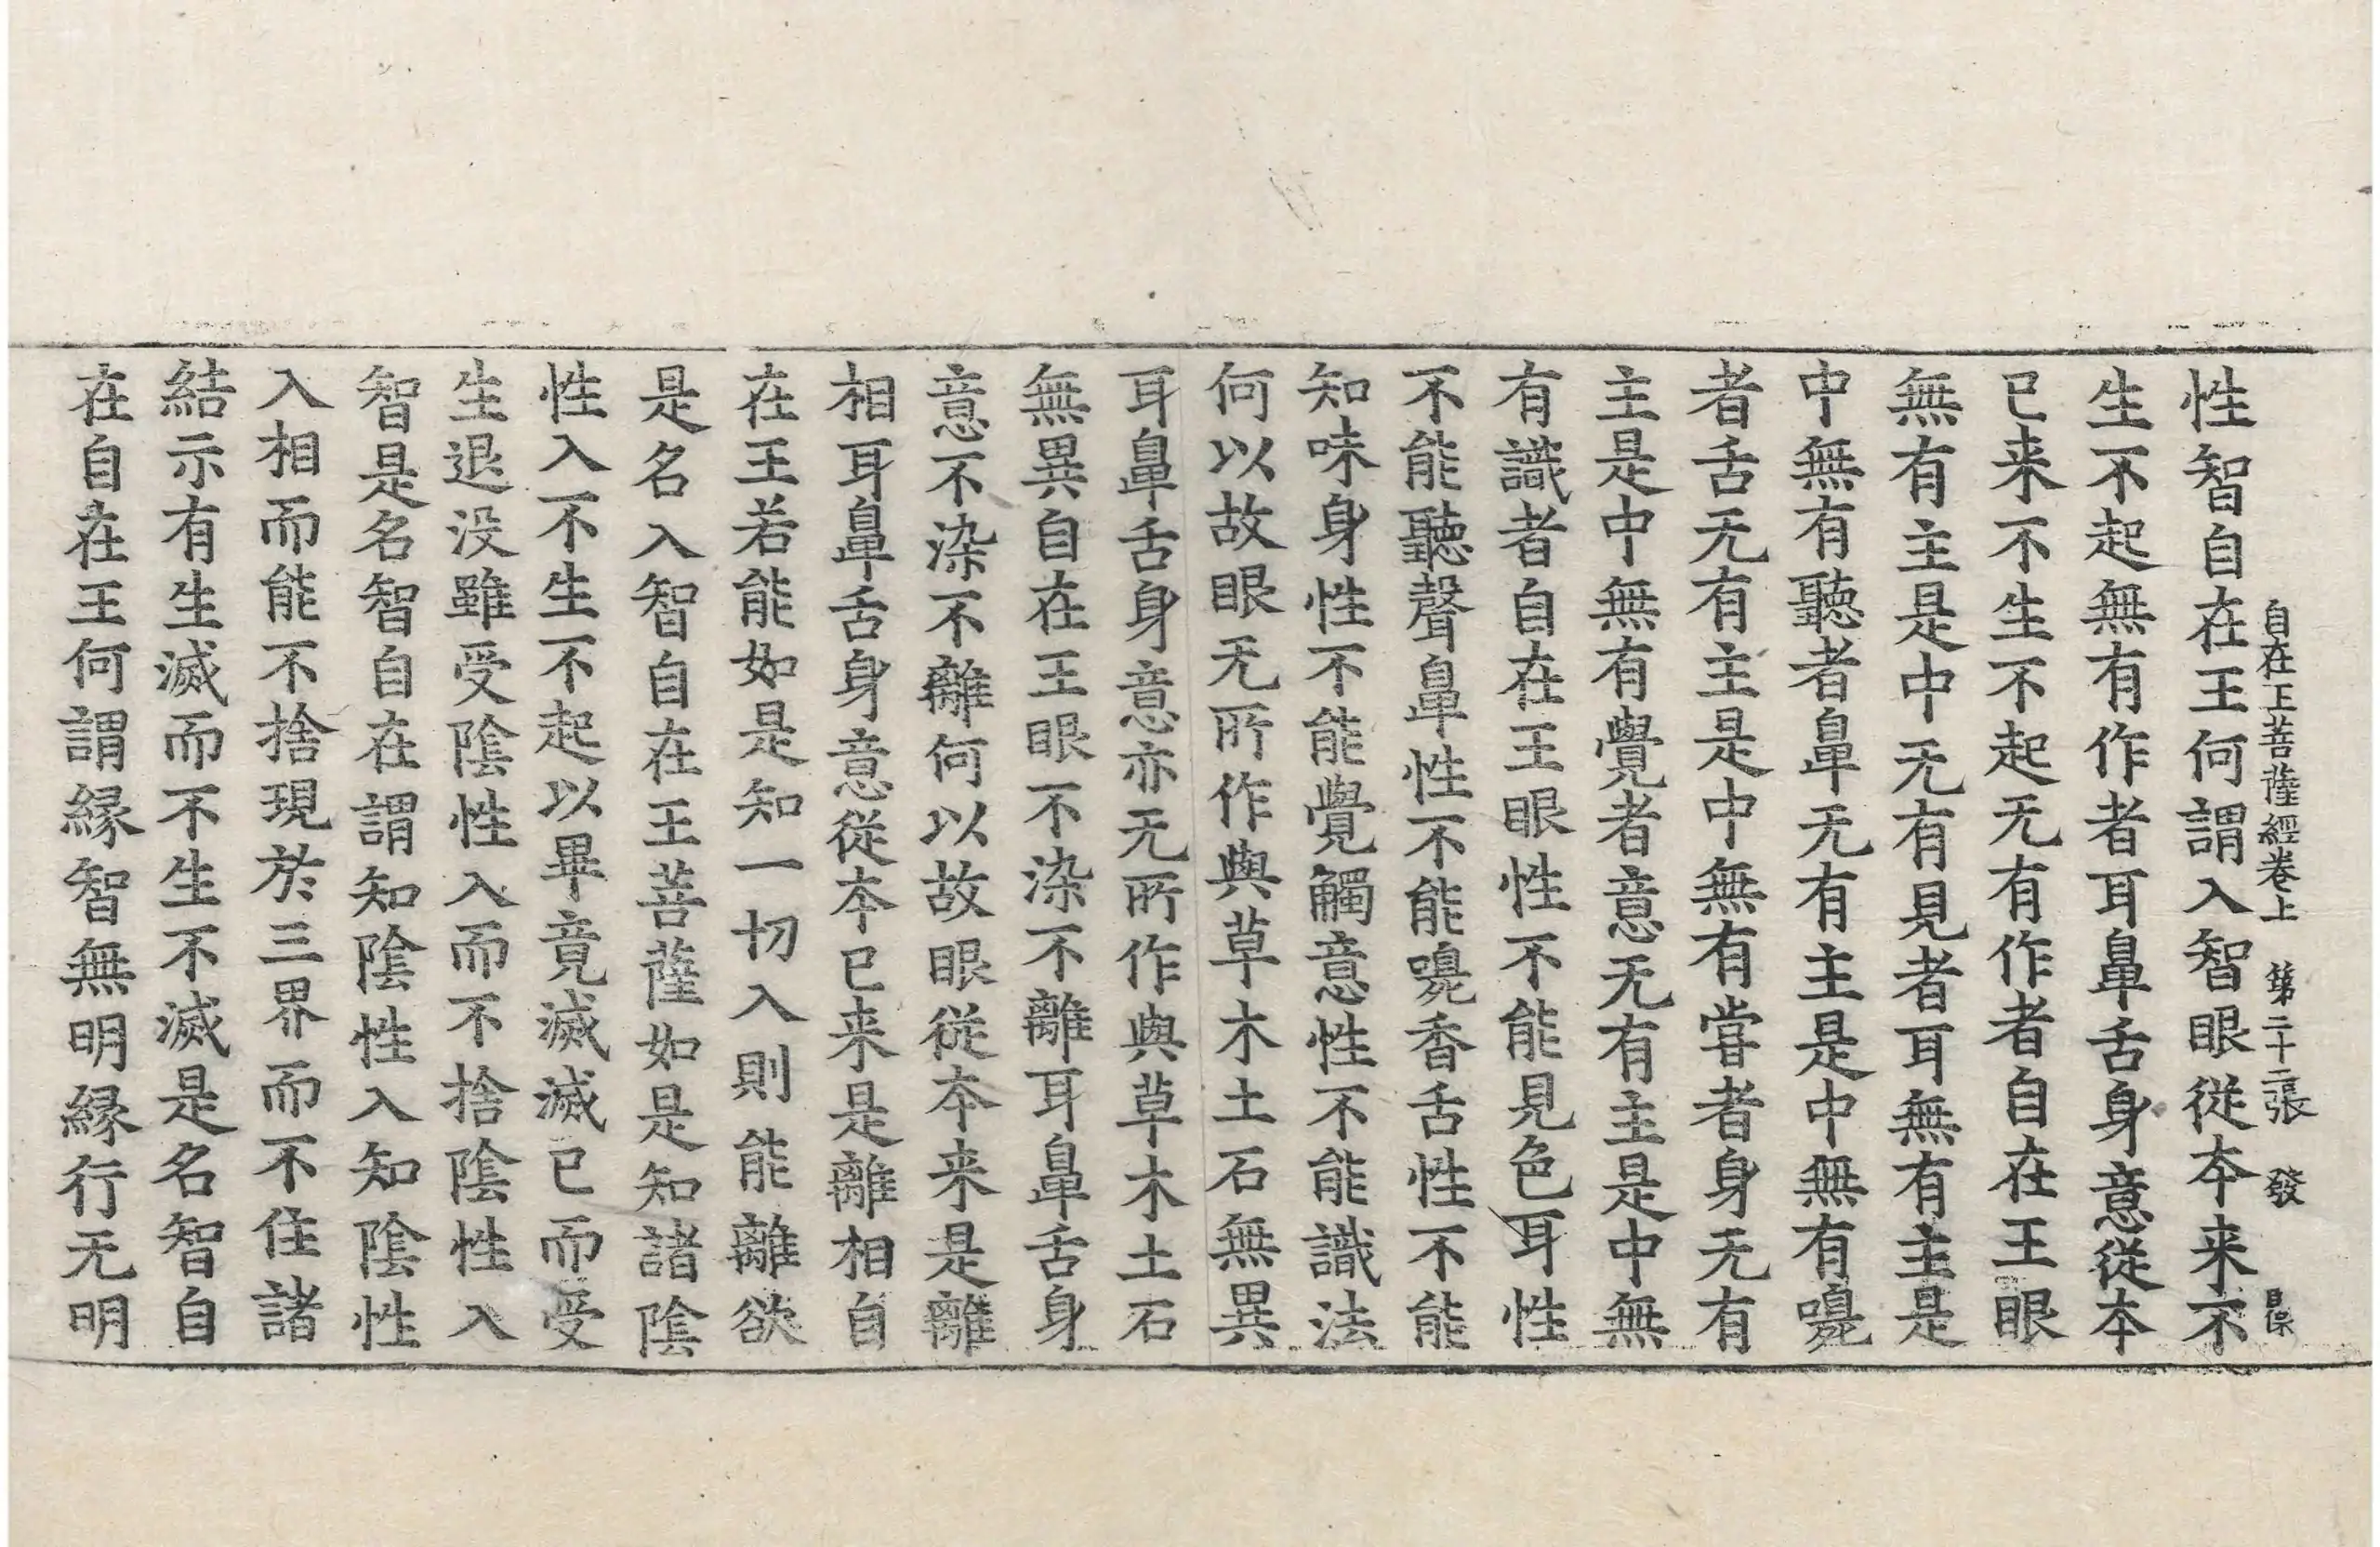 自在王菩薩經卷上 第二十二張 發
性智自在王何謂入智眼從本来不
生不起無有作者耳鼻舌身意從本
已来不生不起无有作者自在王眼
無有主是中无有見者耳無有主是
中無有聽者鼻无有主是中無有嗅
者舌无有主是中無有甞者身无有
主是中無有覺者意无有主是中無
有識者自在王眼性不能見色耳性
不能聽聲鼻性不能嗅香舌性不能
知味身性不能覺觸意性不能識法
何以故眼无所作與草木土石無異
耳鼻舌身意亦无所作與草木土石
無異自在王眼不染不離耳鼻舌身
意不染不離何以故眼從本来是離
相耳鼻舌身意從本已来是離相自
在王若能如是知一切入則能離欲
是名入智自在王菩薩如是知諸陰
性入不生不起以畢竟滅滅已而受
生退没雖受陰性入而不捨陰性入
智是名智自在謂知陰性入知陰性
入相而能不捨現於三界而不住諸
結示有生滅而不生不滅是名智自
在自在王何謂緣智無明緣行无明